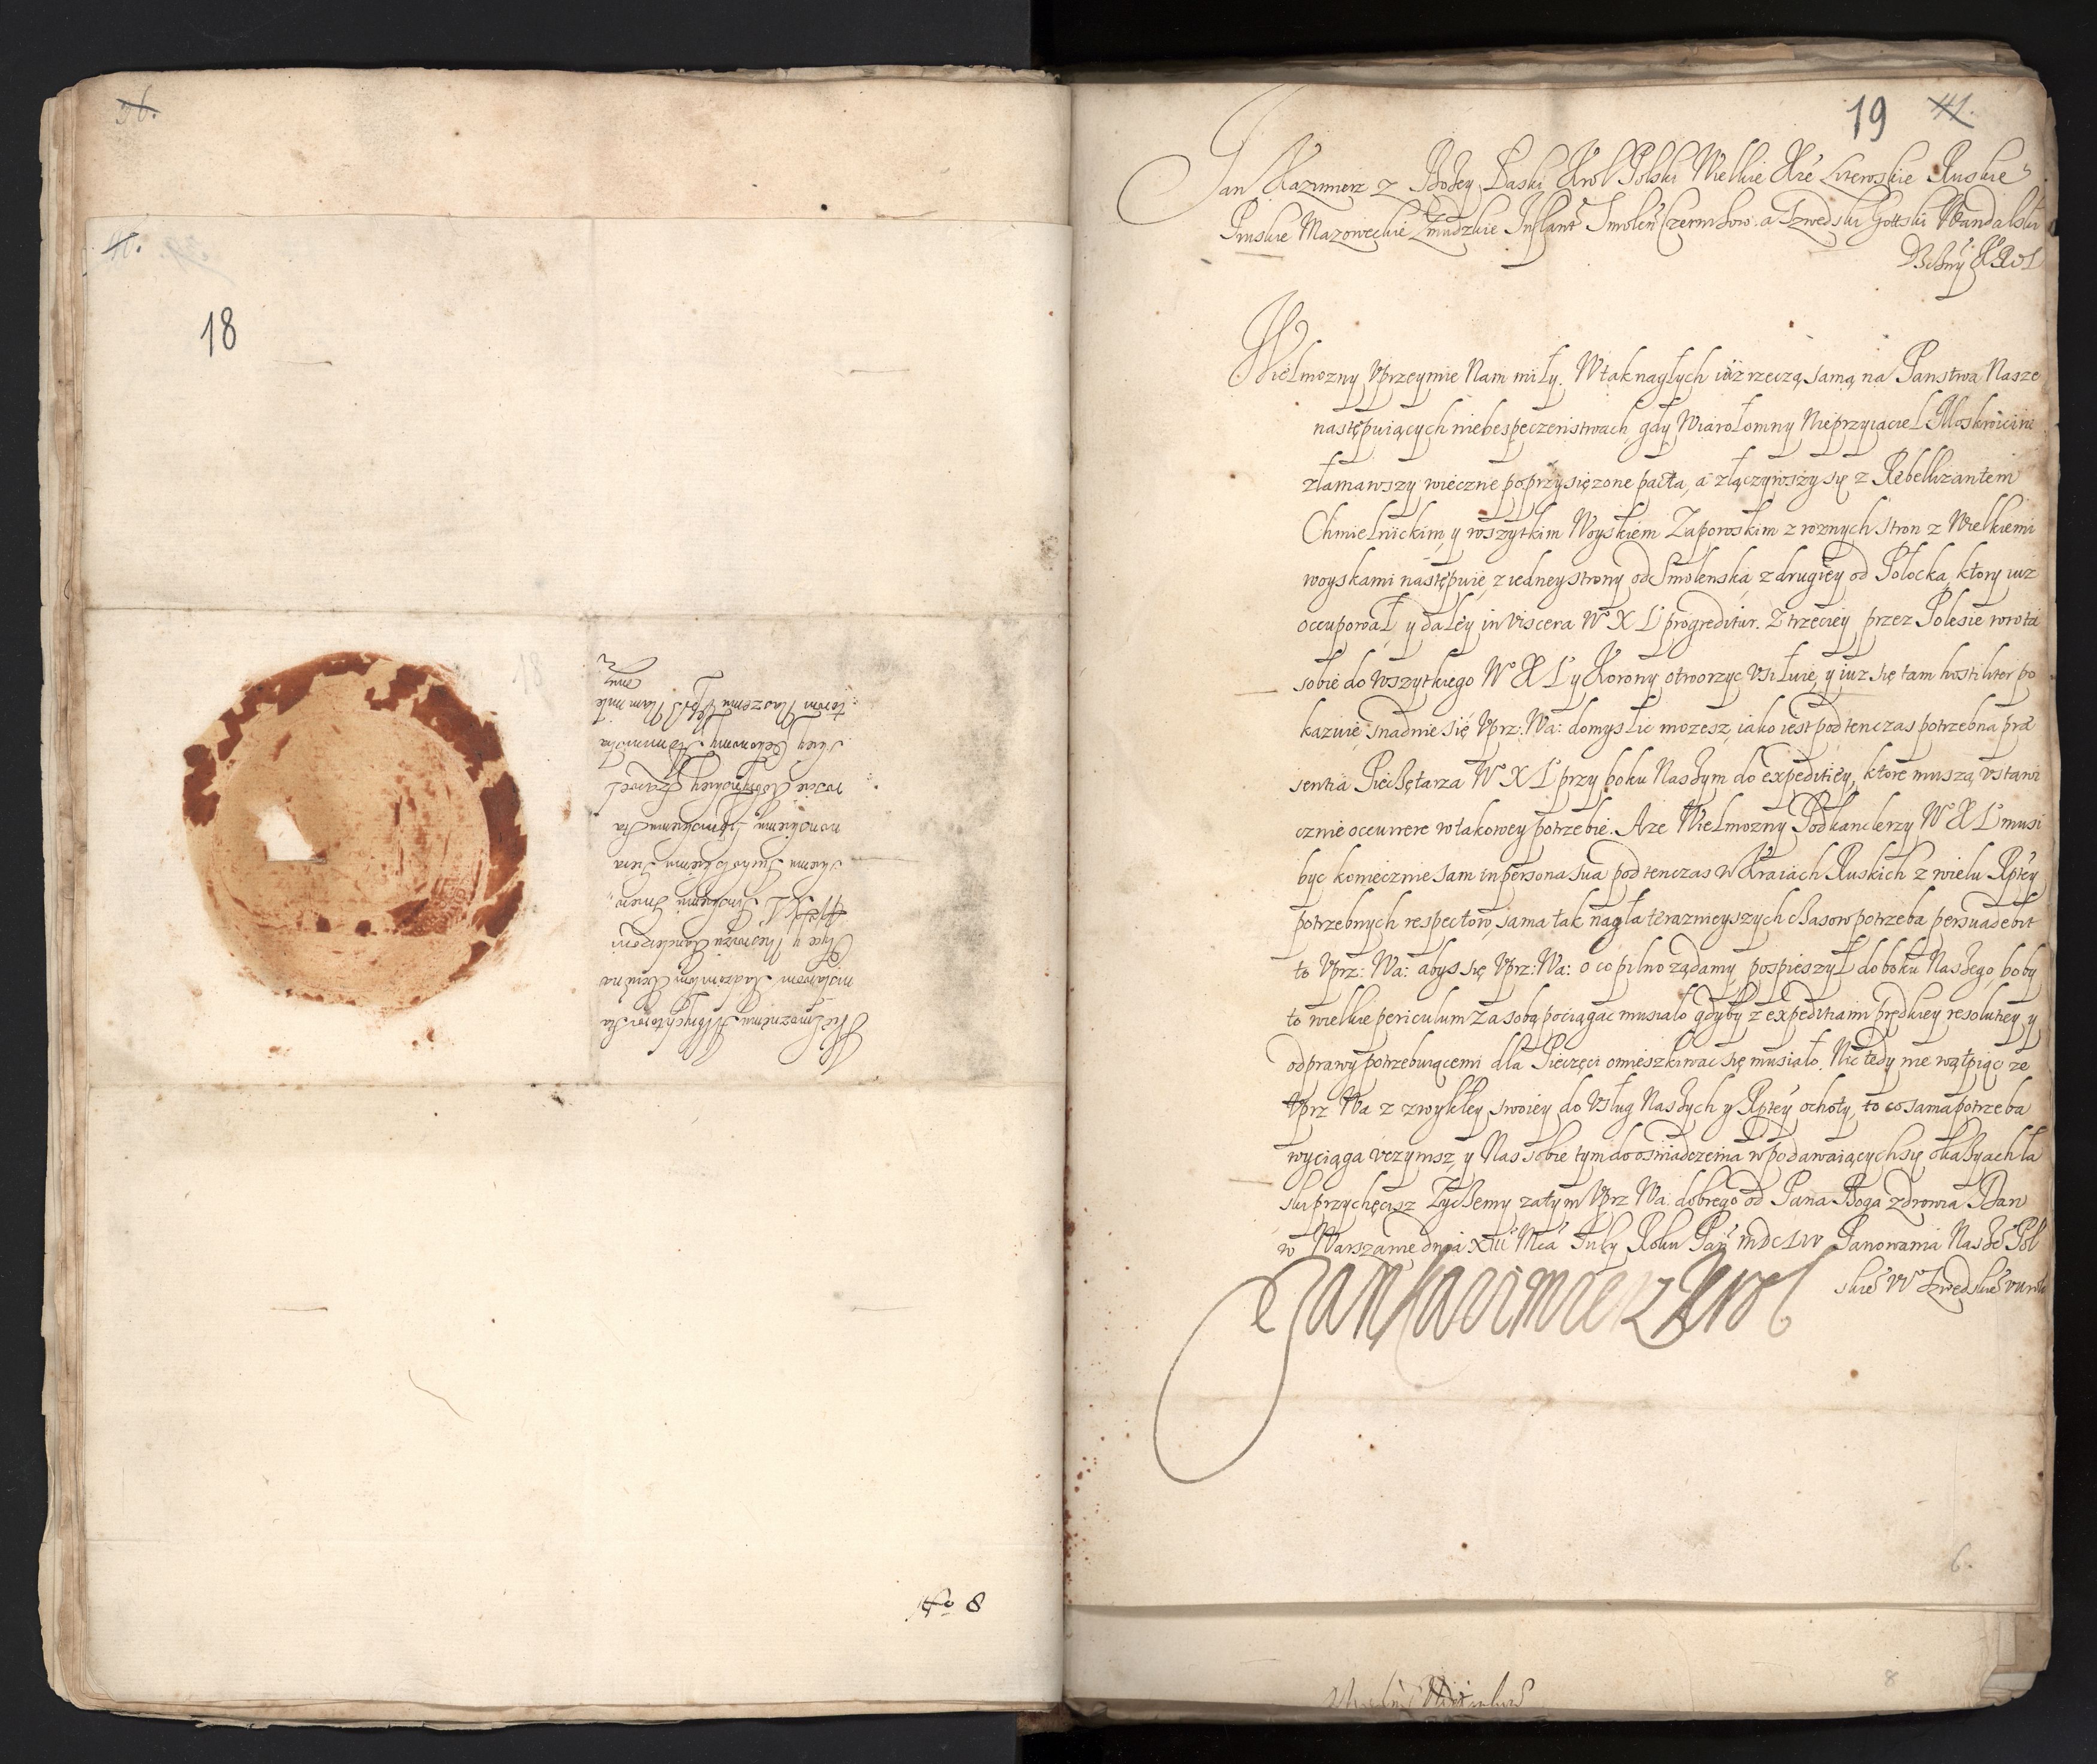 36.
41.
18
Wielmoznemu Albrychtowi Sta
nisławowi Radziwiłowi Xiążęciu na
Ołyce y Nieswizu Kanclerzowi
W X L Pinskiemu Gniew
skiemu Tucholskiemu Gera
nonskiemu Lipniskiemu Sta
roscie Kobrynskiey Szawel
skiey Oekonomy Administra
torowi Naszemu Uprz Nam miłe
mu
No 8
19 41.
Jan Kazimierz z Bozey Łaski Krol Polski Wielkie Xie Litewskie Ruskie
Pruskie Mazoweckie Zmudzkie Inflant Smolen Czernihow. a Szwedski Gottski Wandalski
Dzdny Krol
Wielmozny Uprzeymie Nam miły. W tak nagłych iuz rzeczą samą na Panstwa Nasze
następuiących niebespeczenstwach, gdy Wiarołomny Nieprzyiaciel Moskwicin
złamawszy wieczne poprzysięzone pacta, a złączywszy się z Rebellizantem
Chmielnickim, y wszytkim Woyskiem Zaporoskim z roznych stron z Wielkiemi
woyskami następuie, z iedney strony od Smolenska, z drugiey od Połocka, ktory iuz
occupował, y daley in viscera W X L progreditur. Z trzeciey przez Polesie wrota
sobie do wszytkiego W X L y Korony otworzyc usiłuie, y iuz się tam hostiliter po
kazuie, snadnie się Uprz: Wa: domyslic mozesz, iako iest pod ten czas potrzebna præ
sentia Pieczętarza W X L przy boku Naszym do expeditiey, ktore muszą ustawi
cznie occurrere w takowey potrzebie. A ze Wielmozny Podkanclerzy W X L musi
byc koniecznie sam in persona sua pod ten czas w Kraiach Ruskich z wielu Rptey
potrzebnych respectow, sama tak nagła terazniejszych czasow potrzeba persuadebit
to Uprz: Wa: abys się Uprz: Wa: o co pilno ządamy, pospieszył do boku Naszego, bo by
to wielkie periculum za sobą pociągac musiało gdyby z expeditiami prędkiey resolutiey y
odprawy potrzebuiącemi dla Pieczęci omieszkiwac się musiało. Nic tedy nie wątpiąc ze
Uprz Wa z zwykłey swoiey do Usług Naszych y Rptey ochoty, to co sama potrzeba
wyciąga uczynisz, y Nas sobie tym do oswiadczenia w podawaiących się okazyach ła
ski przychęcisz Zyczemy zatym Uprz Wa. dobrego od Pana Boga zdrowia Dan
w Warszawie dnia XIII Mca July Roku Pań MDCLIV Panowania Nasze Pol
skie VI Szwedskie VII roku
Jan Kazimierz Krol
6.
8